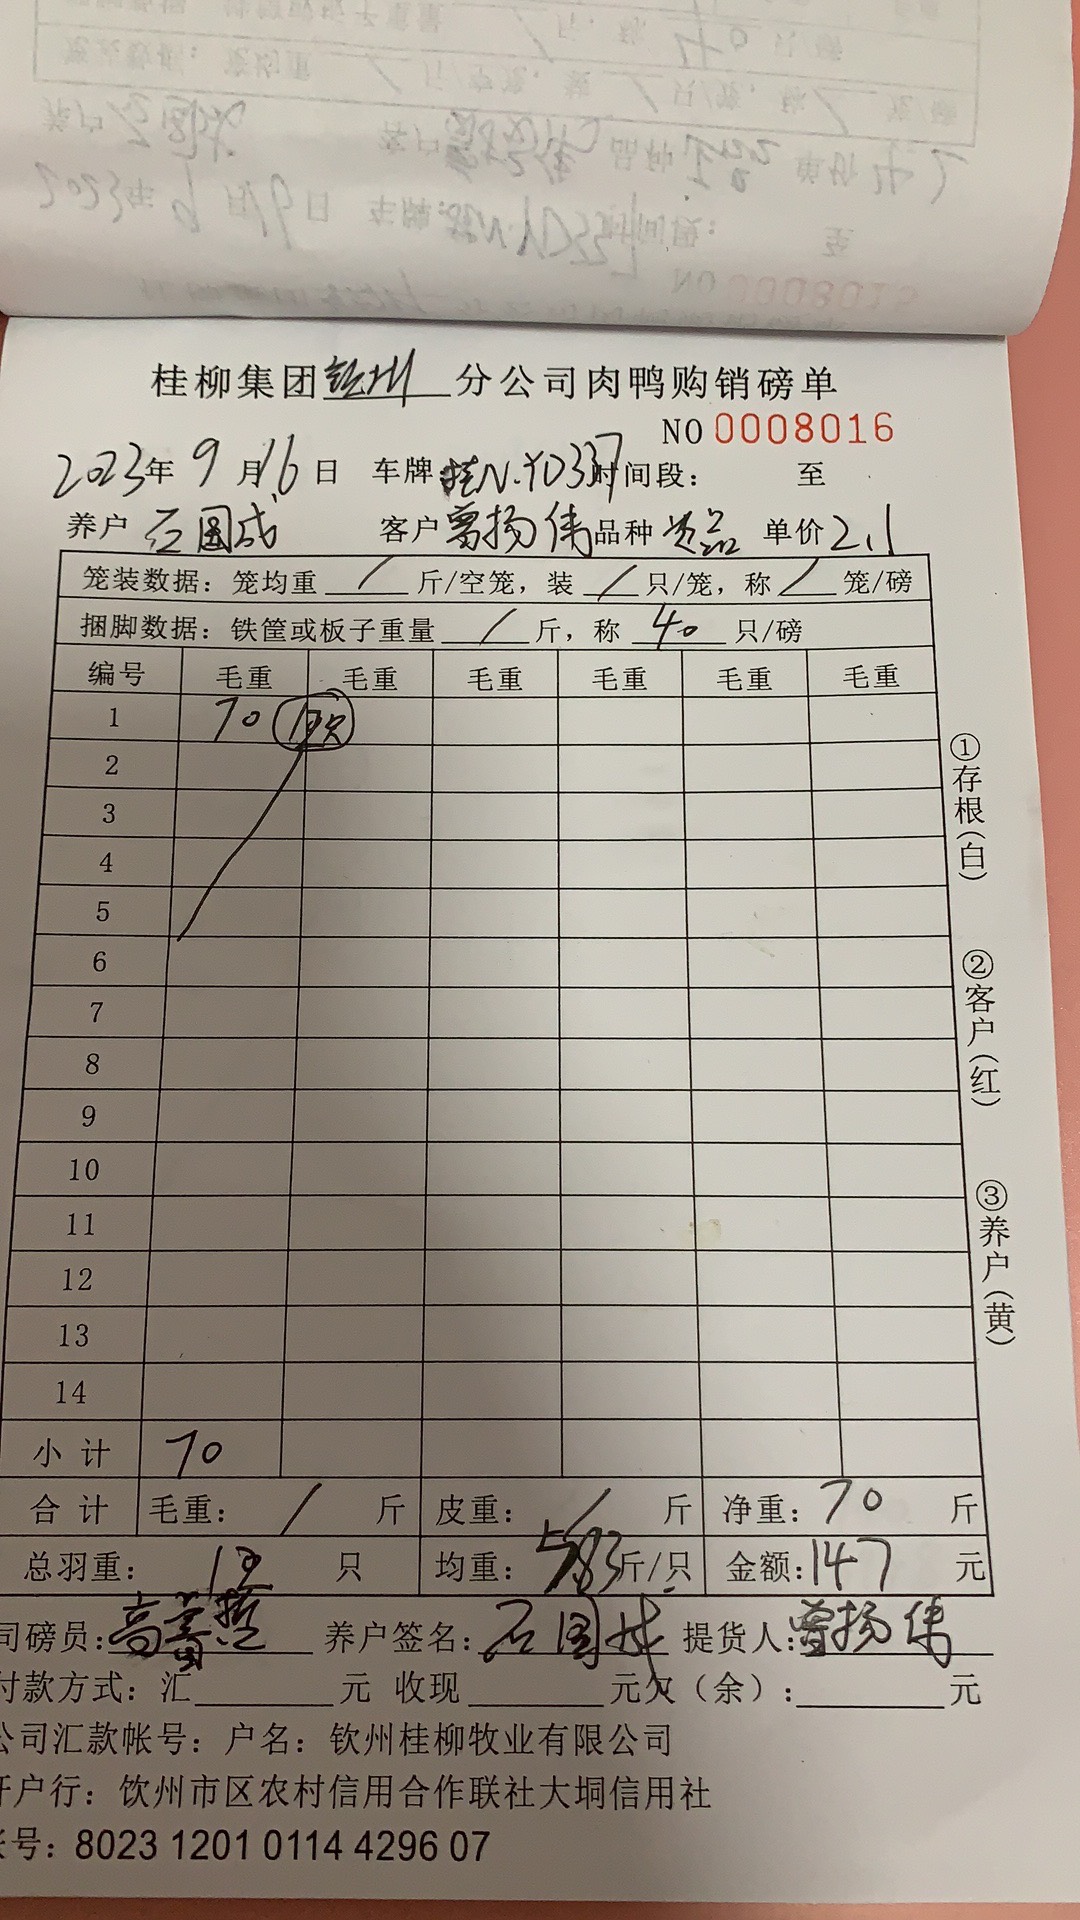 桂柳集团钦州分公司肉鸭购销磅单
NO 0008016
2023年 9 月 16 日 车牌:桂N.YD337 时间段: 至
养户 石国成 客户 曾扬伟 品种 次品 单价 2.1
笼装数据:笼均重 / 斤/空笼,装 / 只/笼,称 / 笼/磅
捆脚数据:铁筐或板子重量 / 斤,称 40 只/磅
编号 毛重 毛重 毛重 毛重 毛重 毛重
1 70 (12只)
2
3
4
5
6
7
8
9
10
11
12
13
14
小计 70
合计 毛重: / 斤 皮重: / 斤 净重: 70 斤
总羽重: 12 只 均重: 5.83 斤/只 金额: 147 元
司磅员: 养户签名: 石国成 提货人: 曾扬伟
付款方式:汇 元 收现 元欠(余): 元
公司汇款帐号:户名:钦州桂柳牧业有限公司
开户行:饮州市区农村信用合作联社大垌信用社
帐号:8023 1201 0114 4296 07
①存根(白)
②客户(红)
③养户(黄)